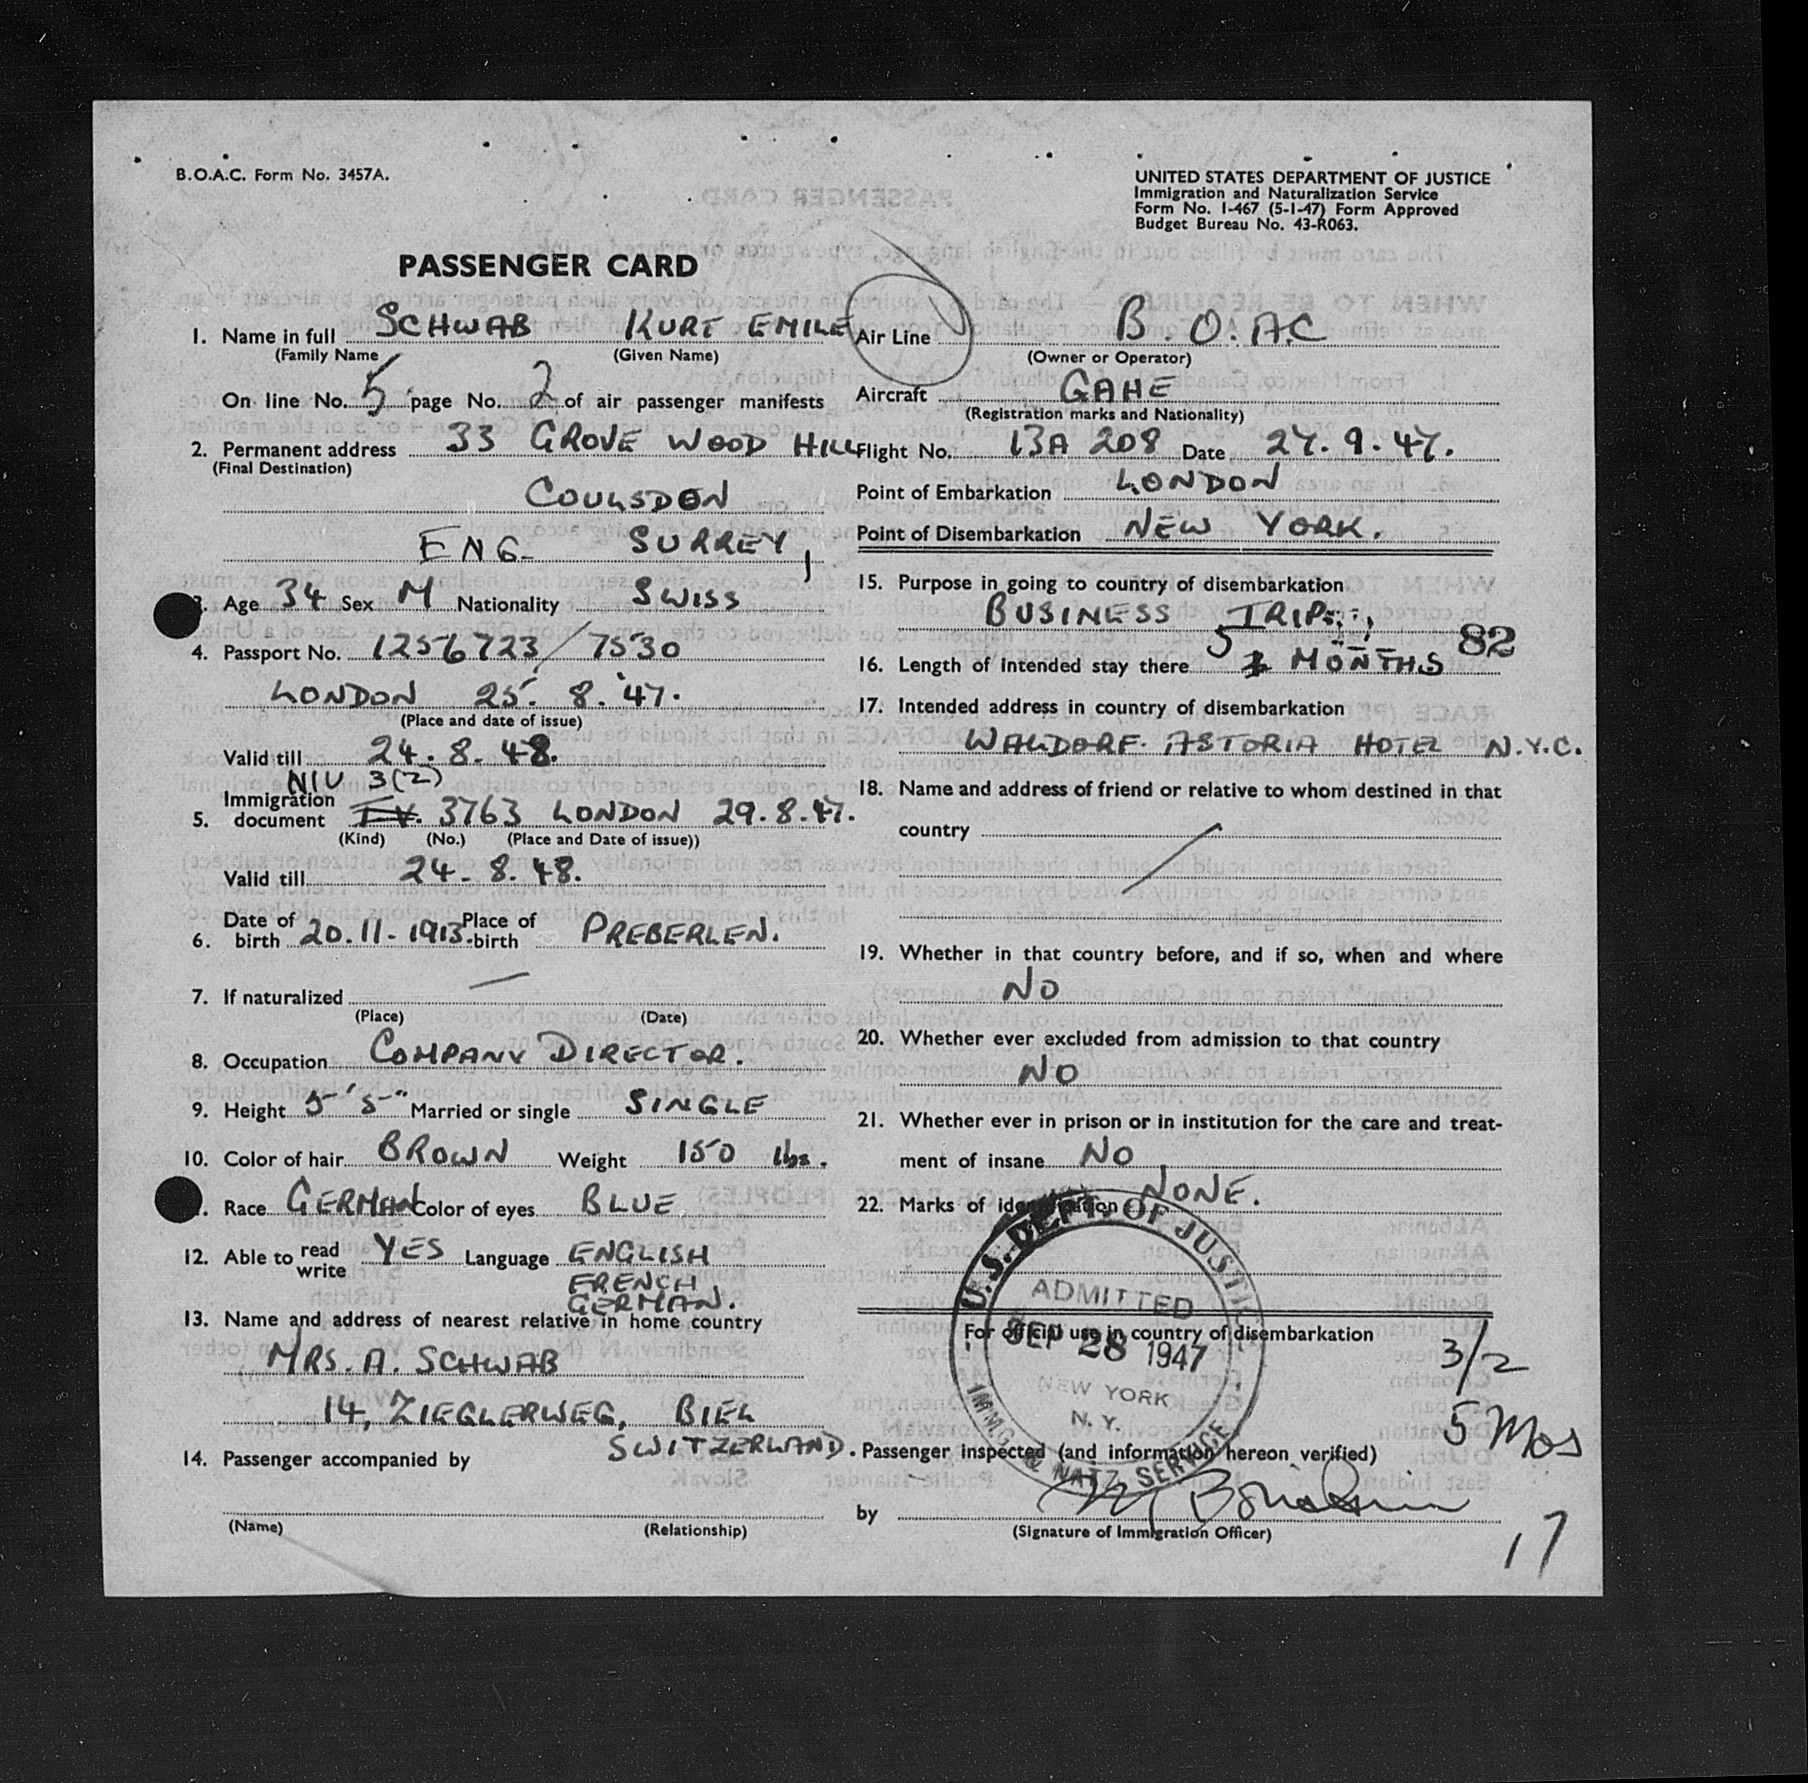 B.O.A.C. Form No. 3457A.
UNITED STATES DEPARTMENT OF JUSTICE
Immigration and Naturalization Service
Form No. I-467 (5-1-47) Form Approved
Budget Bureau No. 43-R063.
PASSENGER CARD
1. Name in full SCHWAB KURT EMILE
(Family Name (Given Name)
On line No. 5 page No. 2 of air passenger manifests
2. Permanent address 33 GROVE WOOD HILL
(Final Destination)
COULSDON
ENG. SURREY,
3. Age 34 Sex M Nationality SWISS
4. Passport No. 1256723/7530
LONDON 25. 8. '47.
(Place and date of issue)
Valid till 24. 8. 48.
NIV 3(2)
5. Immigration document 3763 LONDON 29.8.47.
(Kind) (No.) (Place and Date of issue))
Valid till 24. 8. 48.
6. Date of birth 20.11.1913. Place of birth PREBERLEN.
7. If naturalized —
(Place) (Date)
8. Occupation COMPANY DIRECTOR.
9. Height 5' 5" Married or single SINGLE
10. Color of hair BROWN Weight 150 lbs.
Race GERMAN Color of eyes BLUE
12. Able to read write YES Language ENGLISH
FRENCH
GERMAN.
13. Name and address of nearest relative in home country
MRS. A. SCHWAB
14, ZIEGLERWEG, BIEL
SWITZERLAND.
14. Passenger accompanied by
(Name) (Relationship)
Air Line B.O.A.C
(Owner or Operator)
Aircraft GAHE
(Registration marks and Nationality)
Flight No. BA 208 Date 27. 9. 47.
Point of Embarkation LONDON
Point of Disembarkation NEW YORK.
15. Purpose in going to country of disembarkation
BUSINESS TRIP
82
16. Length of intended stay there 5 MONTHS
17. Intended address in country of disembarkation
WALDORF. ASTORIA HOTEL N.Y.C.
18. Name and address of friend or relative to whom destined in that
country /
19. Whether in that country before, and if so, when and where
NO
20. Whether ever excluded from admission to that country
NO
21. Whether ever in prison or in institution for the care and treat-
ment of insane NO
22. Marks of identification NONE.
U.S. DEPT. OF JUSTICE
ADMITTED
SEP 28 1947
NEW YORK
N. Y.
IMMIG. & NATZ. SERVICE
For official use in country of disembarkation
3/2
5 Mos
Passenger inspected (and information hereon verified)
by
(Signature of Immigration Officer)
17